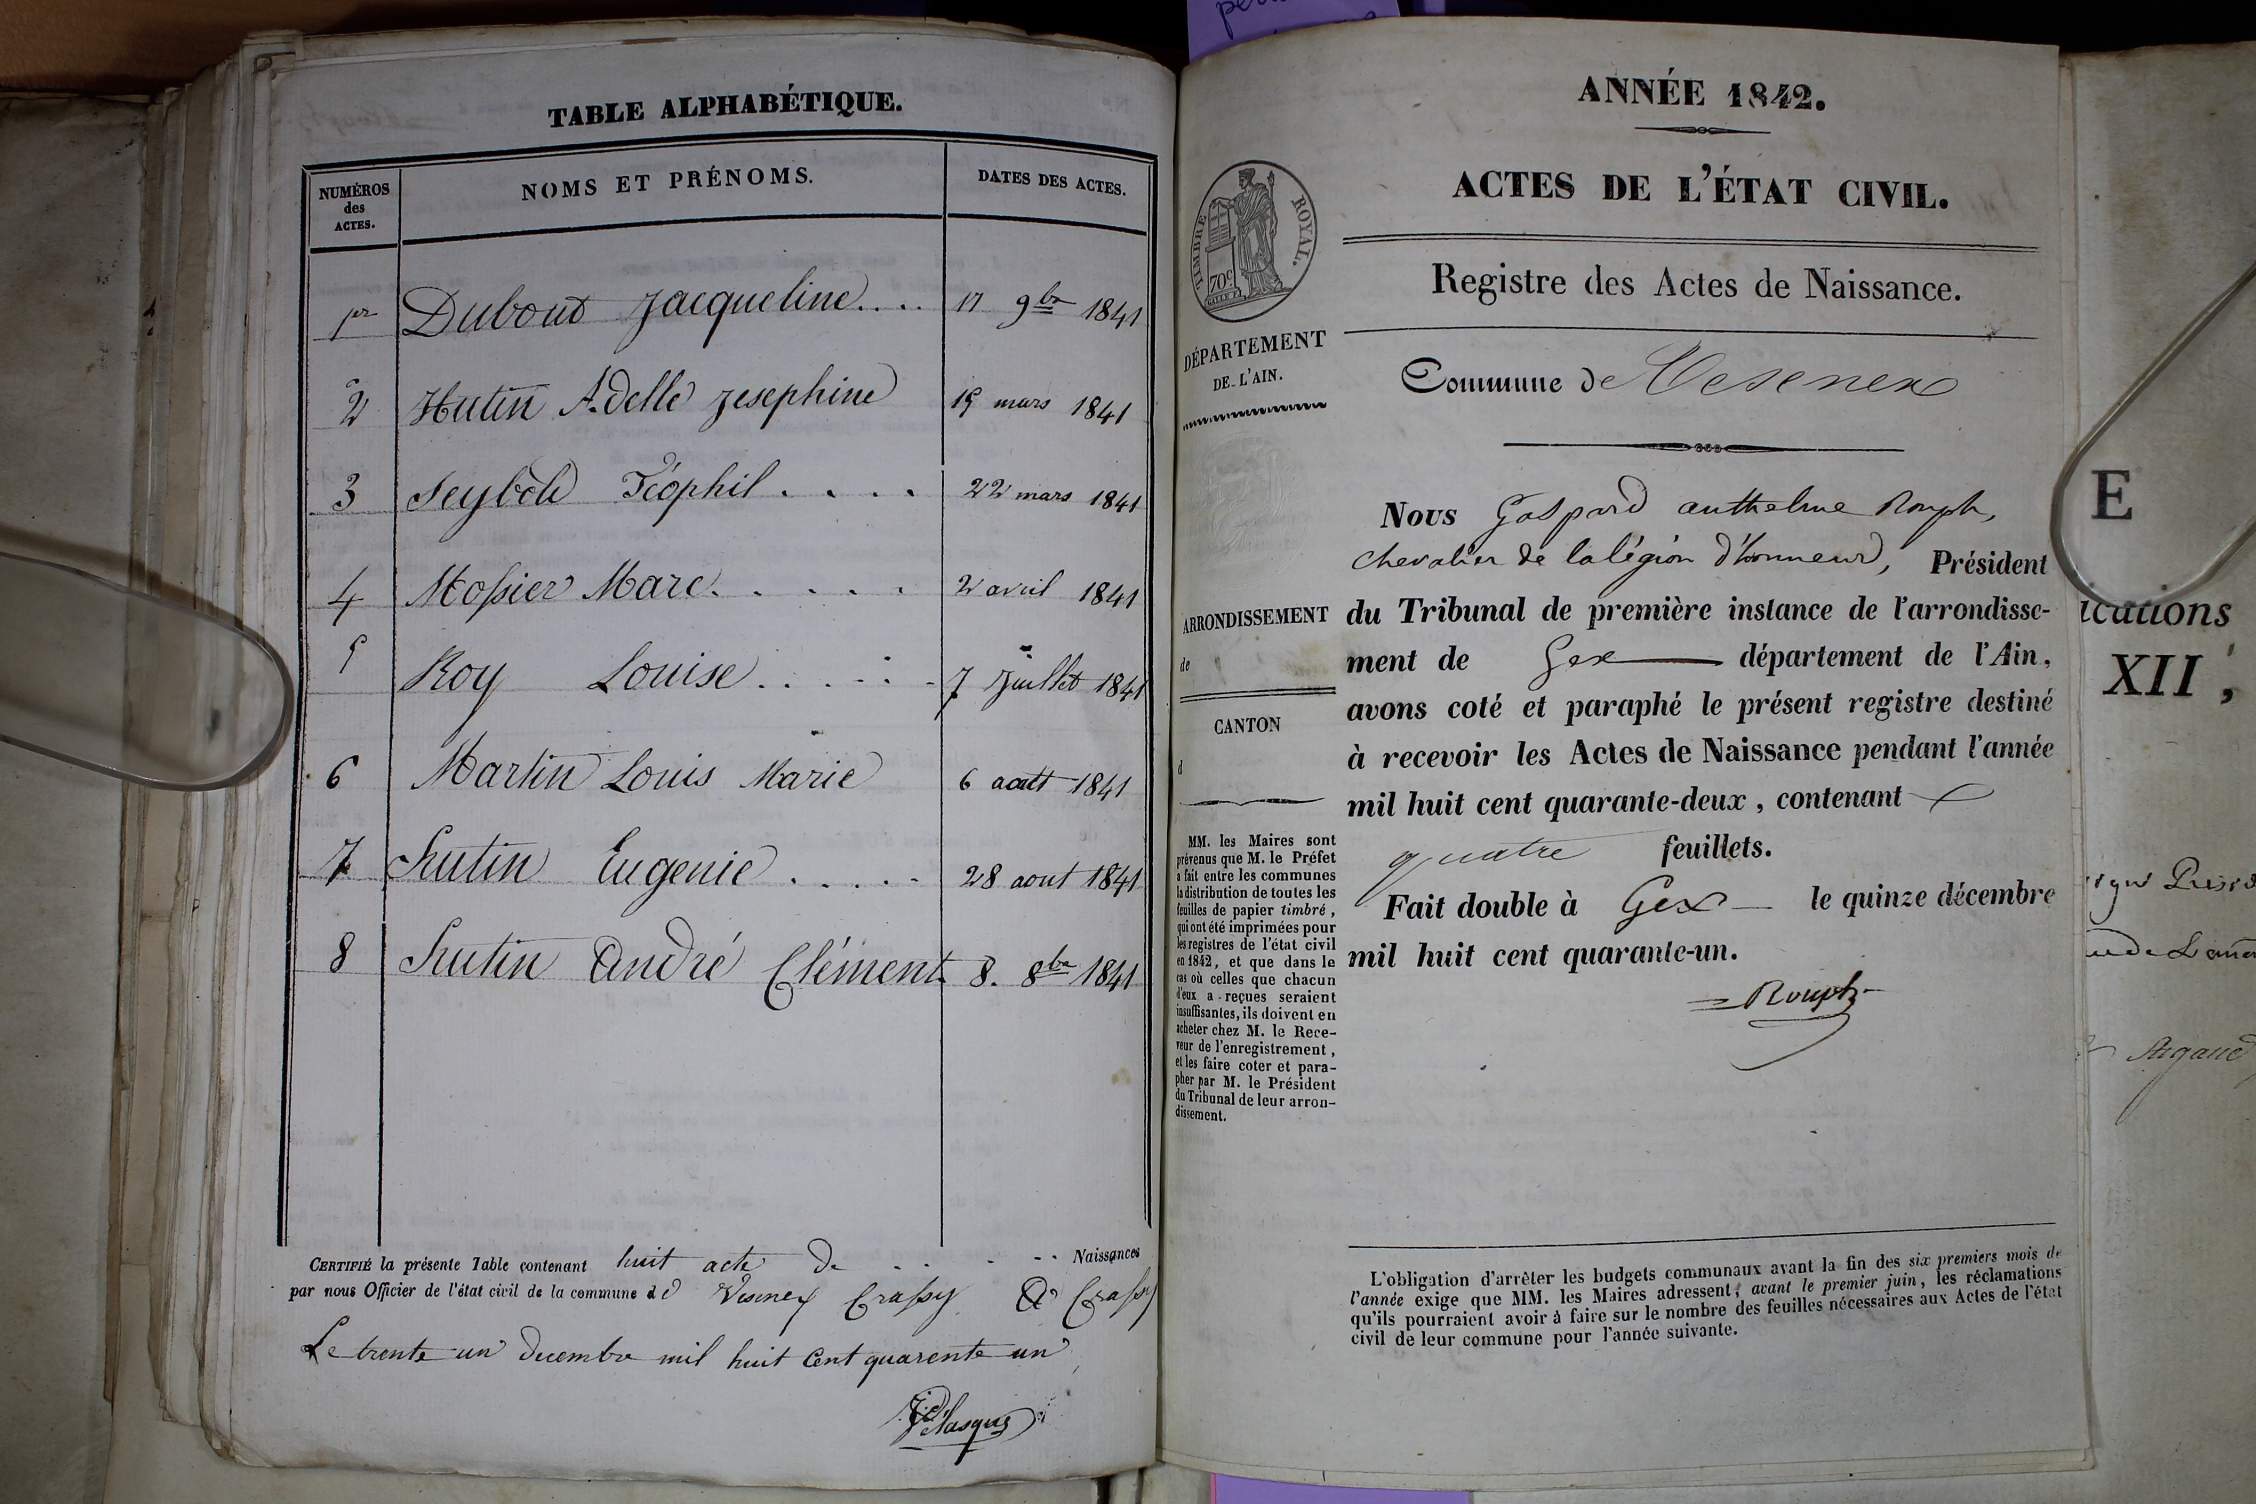 TABLE ALPHABÉTIQUE.
NUMÉROS des ACTES. NOMS ET PRÉNOMS. DATES DES ACTES.
1er Dubout Jacqueline.... 17 9bre 1841
2 Hutin Adelle Jesephine 19 mars 1841
3 Téophil.... 22 mars 1841
4 Mossier Marc..... 2 avril 1841
5 Roy Louise..... 7 Juillet 1841
6 Martin Louis Marie 6 aoutt 1841
7 hutin Eugenie..... 28 aout 1841
8 hutin André Clément 8. 8bre 1841
CERTIFIÉ la présente Table contenant huit acte De Naissances
par nous Officier de l'état civil de la commune de Vesenex Crassy A Crassy
Le trente un Decembre mil huit Cent quarente un
ANNÉE 1842.
ACTES DE L'ÉTAT CIVIL.
Registre des Actes de Naissance.
Commune de Vesenex
TIMBRE ROYAL.
70c
DÉPARTEMENT
DE L'AIN.
ARRONDISSEMENT
de
CANTON
d
MM. les Maires sont
prévenus que M. le Préfet
a fait entre les communes
la distribution de toutes les
feuilles de papier timbré,
qui ont été imprimées pour
les registres de l'état civil
en 1842, et que dans le
cas où celles que chacun
d'eux a reçues seraient
insuffisantes, ils doivent en
acheter chez M. le Rece-
veur de l'enregistrement,
et les faire coter et para-
pher par M. le Président
du Tribunal de leur arron-
dissement.
Nous Gaspard anthelme Rouph,
chevalier de la légion d'honneur, Président
du Tribunal de première instance de l'arrondisse-
ment de Gex département de l'Ain,
avons coté et paraphé le présent registre destiné
à recevoir les Actes de Naissance pendant l'année
mil huit cent quarante-deux, contenant
quatre feuillets.
Fait double à Gex le quinze décembre
mil huit cent quarante-un.
Rouph
L'obligation d'arrêter les budgets communaux avant la fin des six premiers mois de
l'année exige que MM. les Maires adressent, avant le premier juin, les réclamations
qu'ils pourraient avoir à faire sur le nombre des feuilles nécessaires aux Actes de l'état
civil de leur commune pour l'année suivante.
E
XII,